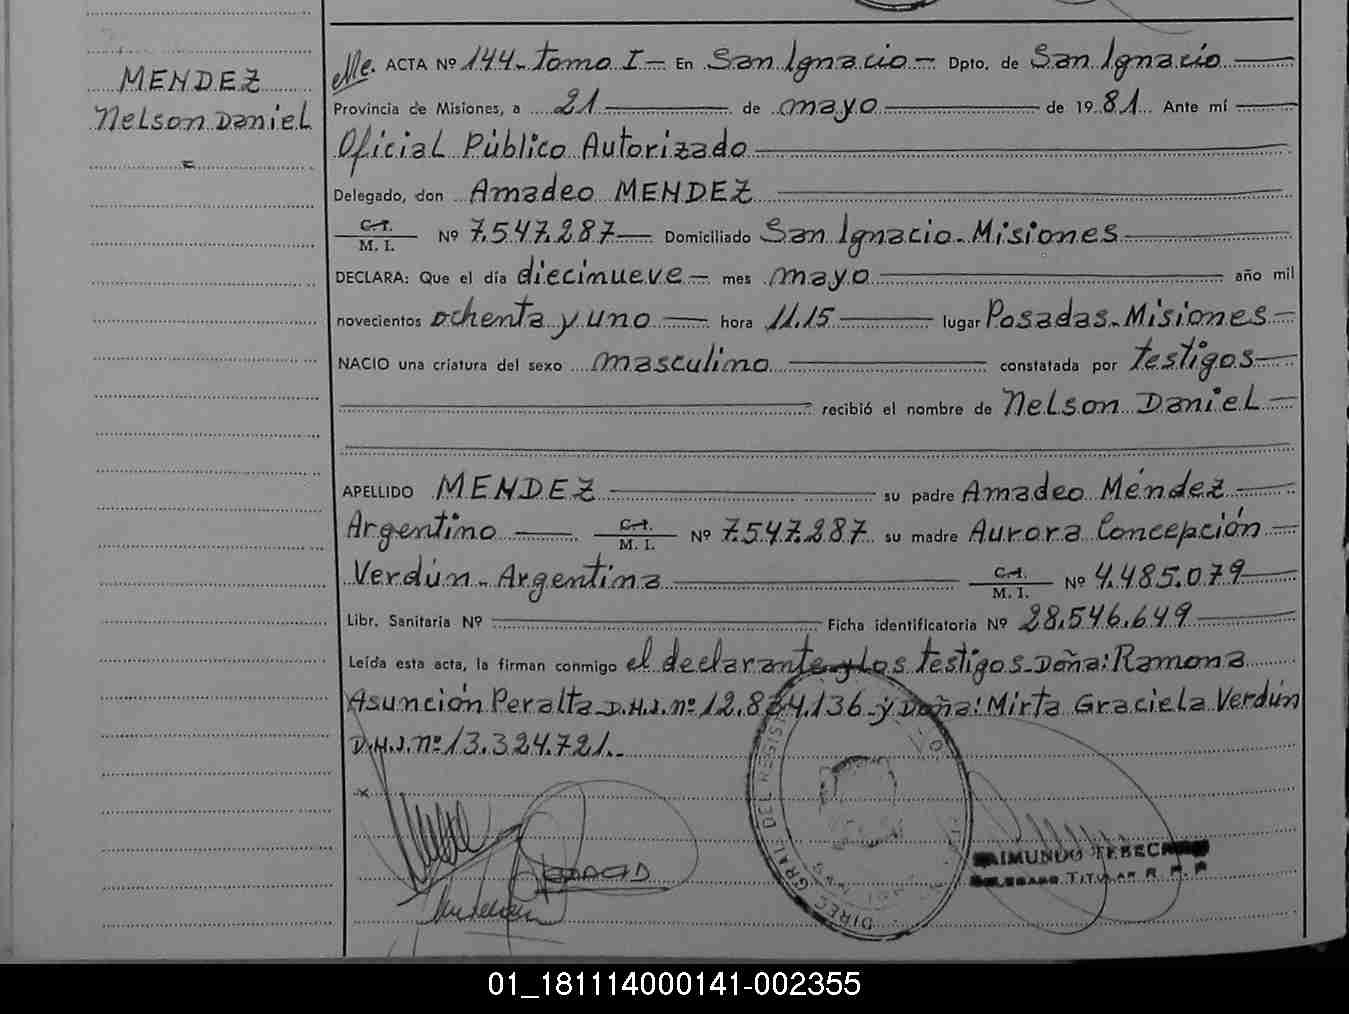 MENDEZ
Nelson Daniel
ACTA Nº 144- Tomo I - En San Ignacio - Dpto. de San Ignacio
Provincia de Misiones, a 21 de mayo de 1981 Ante mí
Oficial Público Autorizado
Delegado, don Amadeo MENDEZ
C.I.
M. I. Nº 7.547.287 - Domiciliado San Ignacio - Misiones
DECLARA: Que el día diecinueve - mes mayo año mil
novecientos ochenta y uno hora 11.15 lugar Posadas - Misiones -
NACIO una criatura del sexo masculino constatada por testigos
recibió el nombre de Nelson Daniel
APELLIDO MENDEZ su padre Amadeo Méndez
Argentino C.I. M. I. Nº 7.547.287 su madre Aurora Concepción
Verdún - Argentina C.I. M. I. Nº 4.485.079
Libr. Sanitaria Nº Ficha identificatoria Nº 28.546.649
Leída esta acta, la firman conmigo el declarante y los testigos - Doña: Ramona
Asunción Peralta - D.N.I. nº 12.834.136 - y Doña: Mirta Graciela Verdún
D.N.I. nº 13.324.721.-
DIREC. GRAL. DEL REGIS
RAIMUNDO
DELEGADO TITULAR R. P. P
01_181114000141-002355